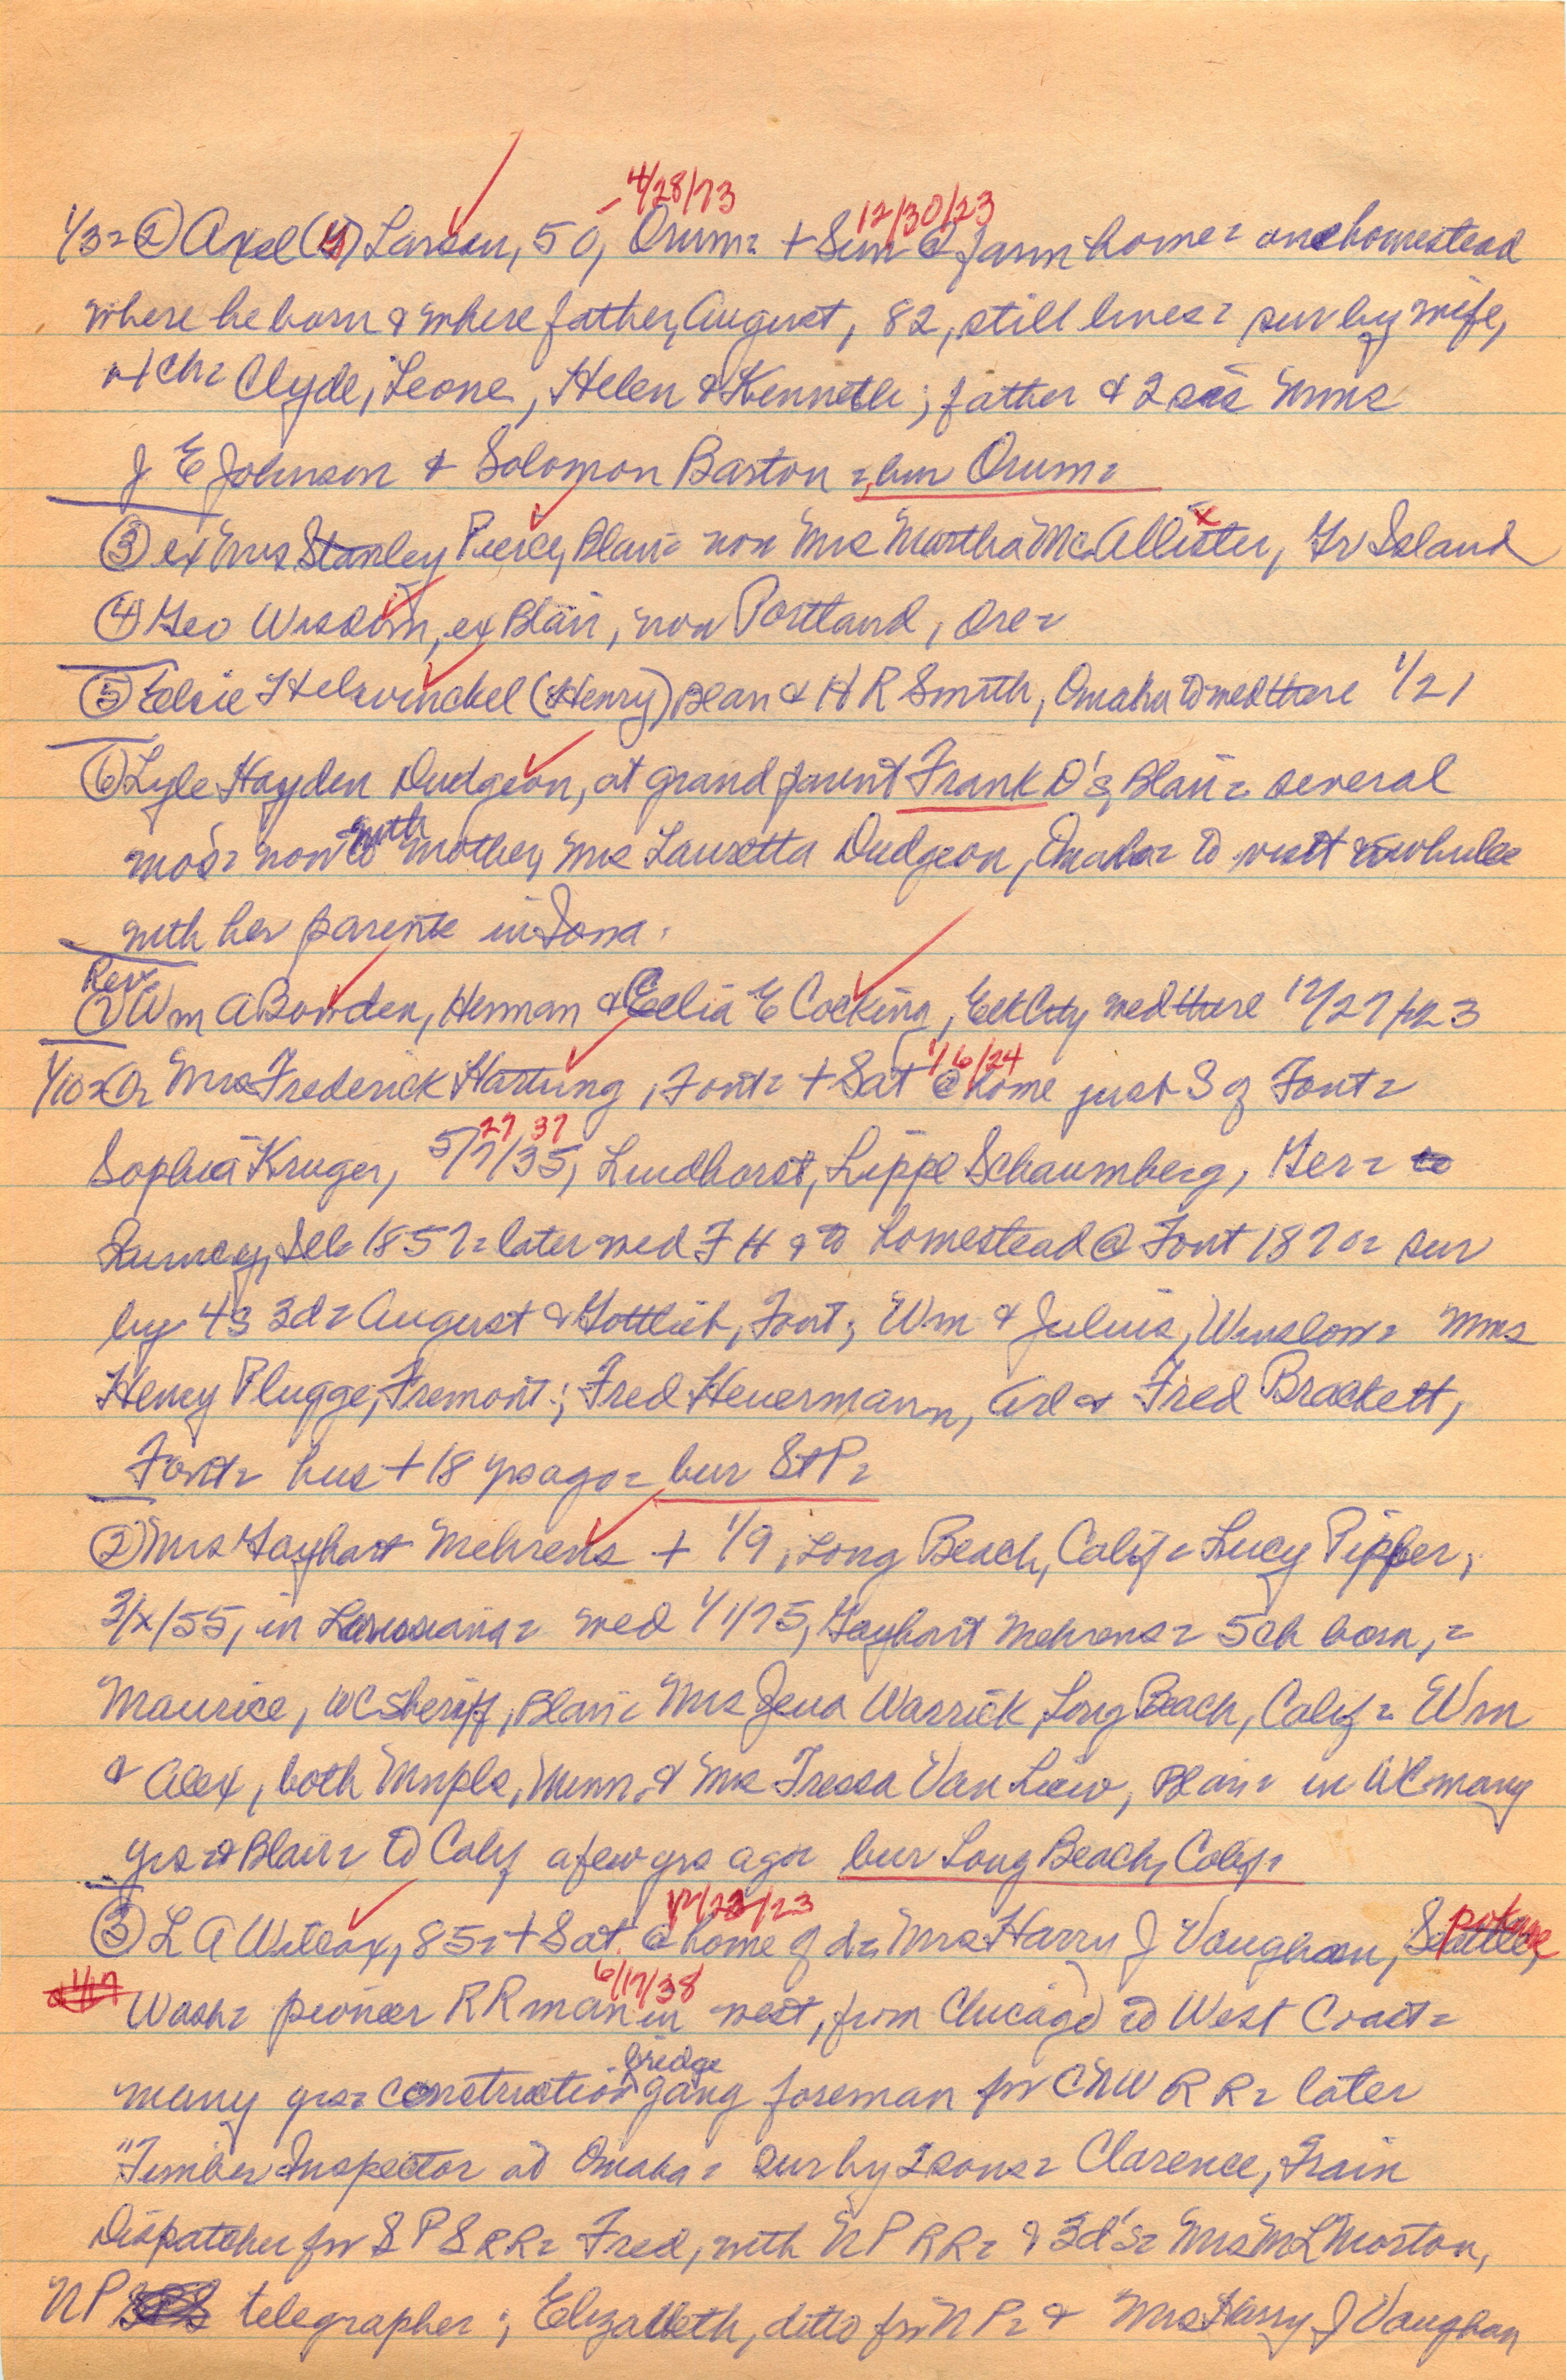 4/28/73 12/30/23
1/3= ② Axel (G) Larson, 50, Orum= + Sun @ farm home= on homestead
where he born & where father, August, 82, still lives= sur by wife,
4 ch= Clyde, Leone, Helen & Kenneth; father & 2 sis Mms
J E Johnson & Solomon Barton= bur Orum=
③ ex Mrs Stanley Pierce, Blair= now Mrs Martha McAllister, Gr Island
④ Geo Wisdom, ex Blair, now Portland, Ore=
⑤ Elsie Helwinckel (Henry) Blair & H R Smith, Omaha to wed there 1/21
⑥ Lyle Hayden Dudgeon, at grandparent Frank D's, Blair= several
mos= now to with mother, Mrs Lauretta Dudgeon, Omaha= to visit a while
with her parents in Iowa.
Rev
⑦ Wm A Bowden, Herman & Celia E Cocking, Elk City wed there 12/27/23
1/6/24
1/10= ① Mrs Frederick Hartung, Font= + Sat @ home just S of Font=
27 37
Sophia Kruger, 5/7/35, Lindhorst, Lippe Schaumberg, Ger= to
Ill= 1857= later wed F H & to homestead @ Font 1870= sur
by 4s 3d= August & Gottlieb, Font; Wm & Julius, Winslow= Mms
Henry Plugge, Fremont; Fred Heuermann, Arl & Fred Brackett,
Font= hus + 18 yrs ago= bur St P=
② Mrs Gayhart Mehrens + 1/9, Long Beach, Calif= Lucy Pipher,
3/x/55, in Louisiana= wed 1/1/75, Gayhart Mehrens= 5 ch born,=
Maurice, WC Sheriff, Blair= Mrs Jena Warrick, Long Beach, Calif= Wm
& Alex, both Mnpls, Minn, & Mrs Tressa Van Liew, Blair= in WC many
yrs= @ Blair= to Calif a few yrs ago= bur Long Beach, Calif=
12/22/23
③ L A Wilcox, 85= + Sat @ home of d= Mrs Harry J Vaughan, Seattle, Spokane
1/17 6/17/38
Wash= pioneer RR man in west, from Chicago to West Coast=
bridge
many yrs= construction gang foreman for CNW RR= later
"Timber Inspector at Omaha= sur by 2 sons= Clarence, Train
Dispatcher for SPS RR= Fred, with NP RR= & 3d's= Mrs M L Morton,
NP telegrapher; Elizabeth, ditto for NP= & Mrs Harry J Vaughan